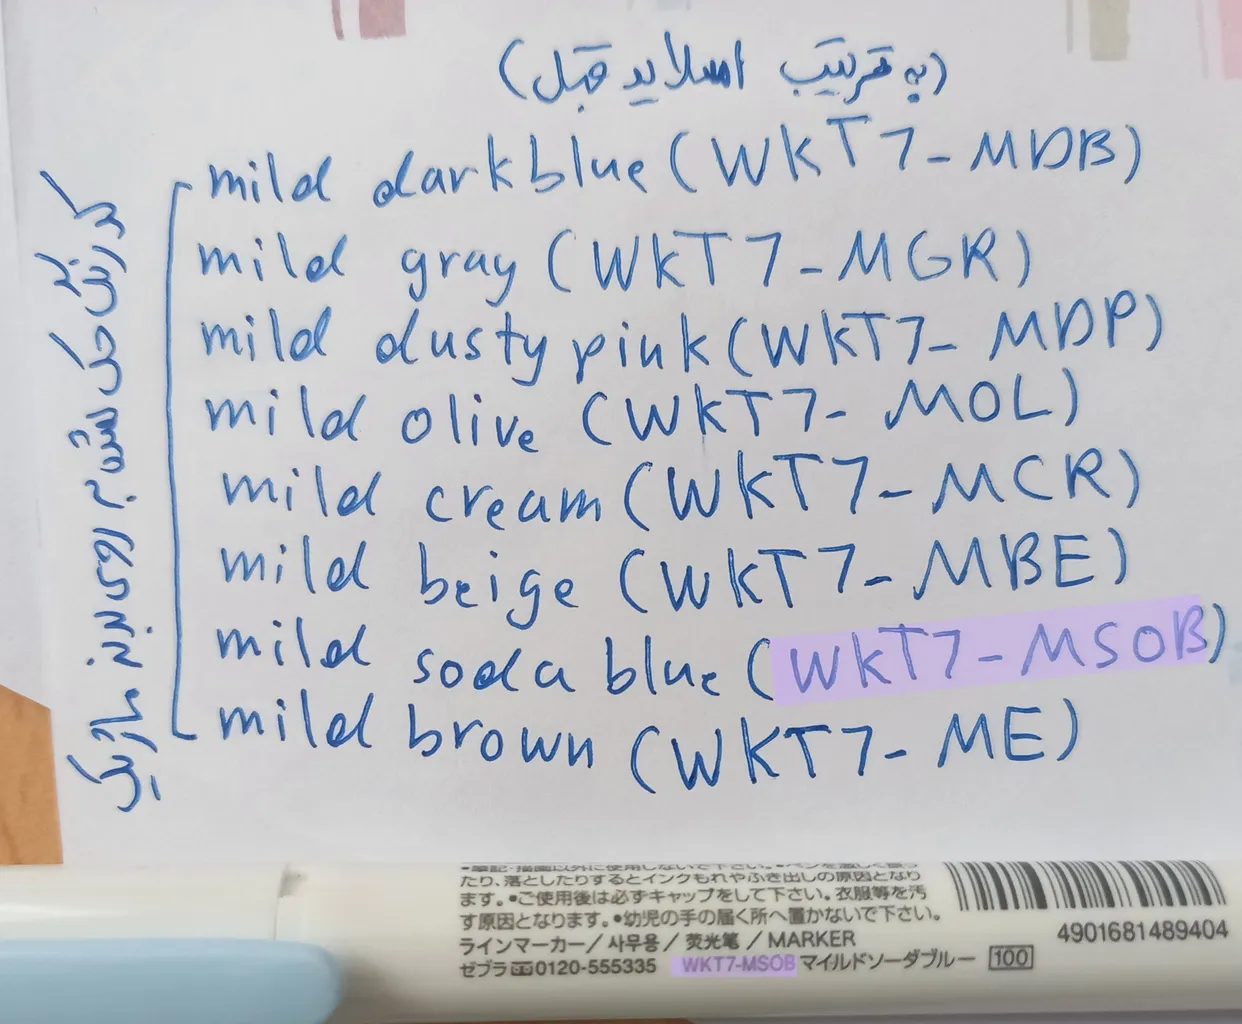 (به ترتیب اسلاید قبل)
mild dark blue (WKT7-MDB)
mild gray (WKT7-MGR)
mild dusty pink (WKT7-MDP)
mild olive (WKT7-MOL)
mild cream (WKT7-MCR)
mild beige (WKT7-MBE)
mild soda blue (WKT7-MSOB)
mild brown (WKT7-ME)
کد رنگ حک شده روی بدنه ماژیک
たり、落としたりするとインクもれやふき出しの原因となり
ます。•ご使用後は必ずキャップをして下さい。衣服等を汚
す原因となります。•幼児の手の届く所へ置かないで下さい。
ラインマーカー/사무용/荧光笔/MARKER
ゼブラ 0120-555335 WKT7-MSOB マイルドソーダブルー 100
4901681489404